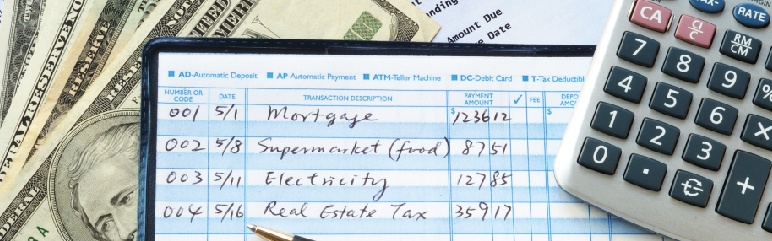 Amount Due
AD-Automatic Deposit AP-Automatic Payment ATM-Teller Machine DC-Debit Card T-Tax Deductibl
NUMBER OR CODE DATE TRANSACTION DESCRIPTION PAYMENT AMOUNT ✓ FEE
001 5/1 Mortgage $ 123612 $
002 5/8 Supermarket (food) 8751
003 5/11 Electricity 12785
004 5/16 Real Estate Tax 35917
RATE
CA C/CE RM CM
7 8 9 %
4 5 6 X
1 2 3
0 . € +